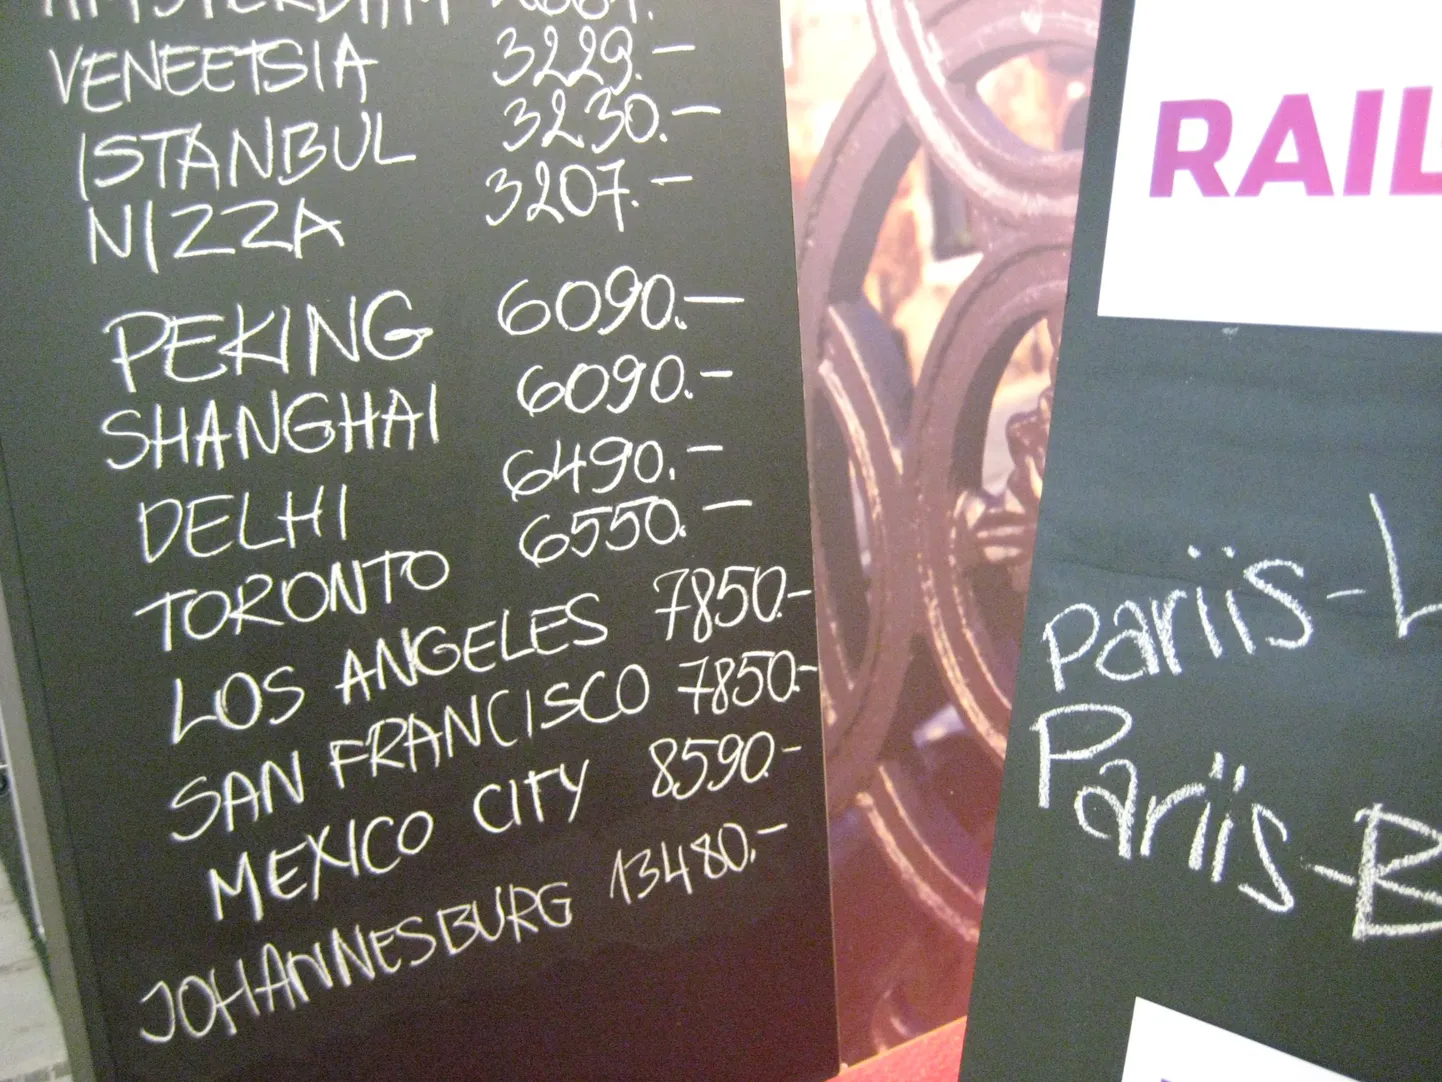 AMSTERDAM
VENEETSIA 3229.-
ISTANBUL 3230.-
NIZZA 3207.-
PEKING 6090.-
SHANGHAI 6090.-
DELHI 6490.-
TORONTO 6550.-
LOS ANGELES 7850.-
SAN FRANCISCO 7850.-
MEXICO CITY 8590.-
JOHANNESBURG 13480.-
RAIL
Pariis-L
Pariis-B